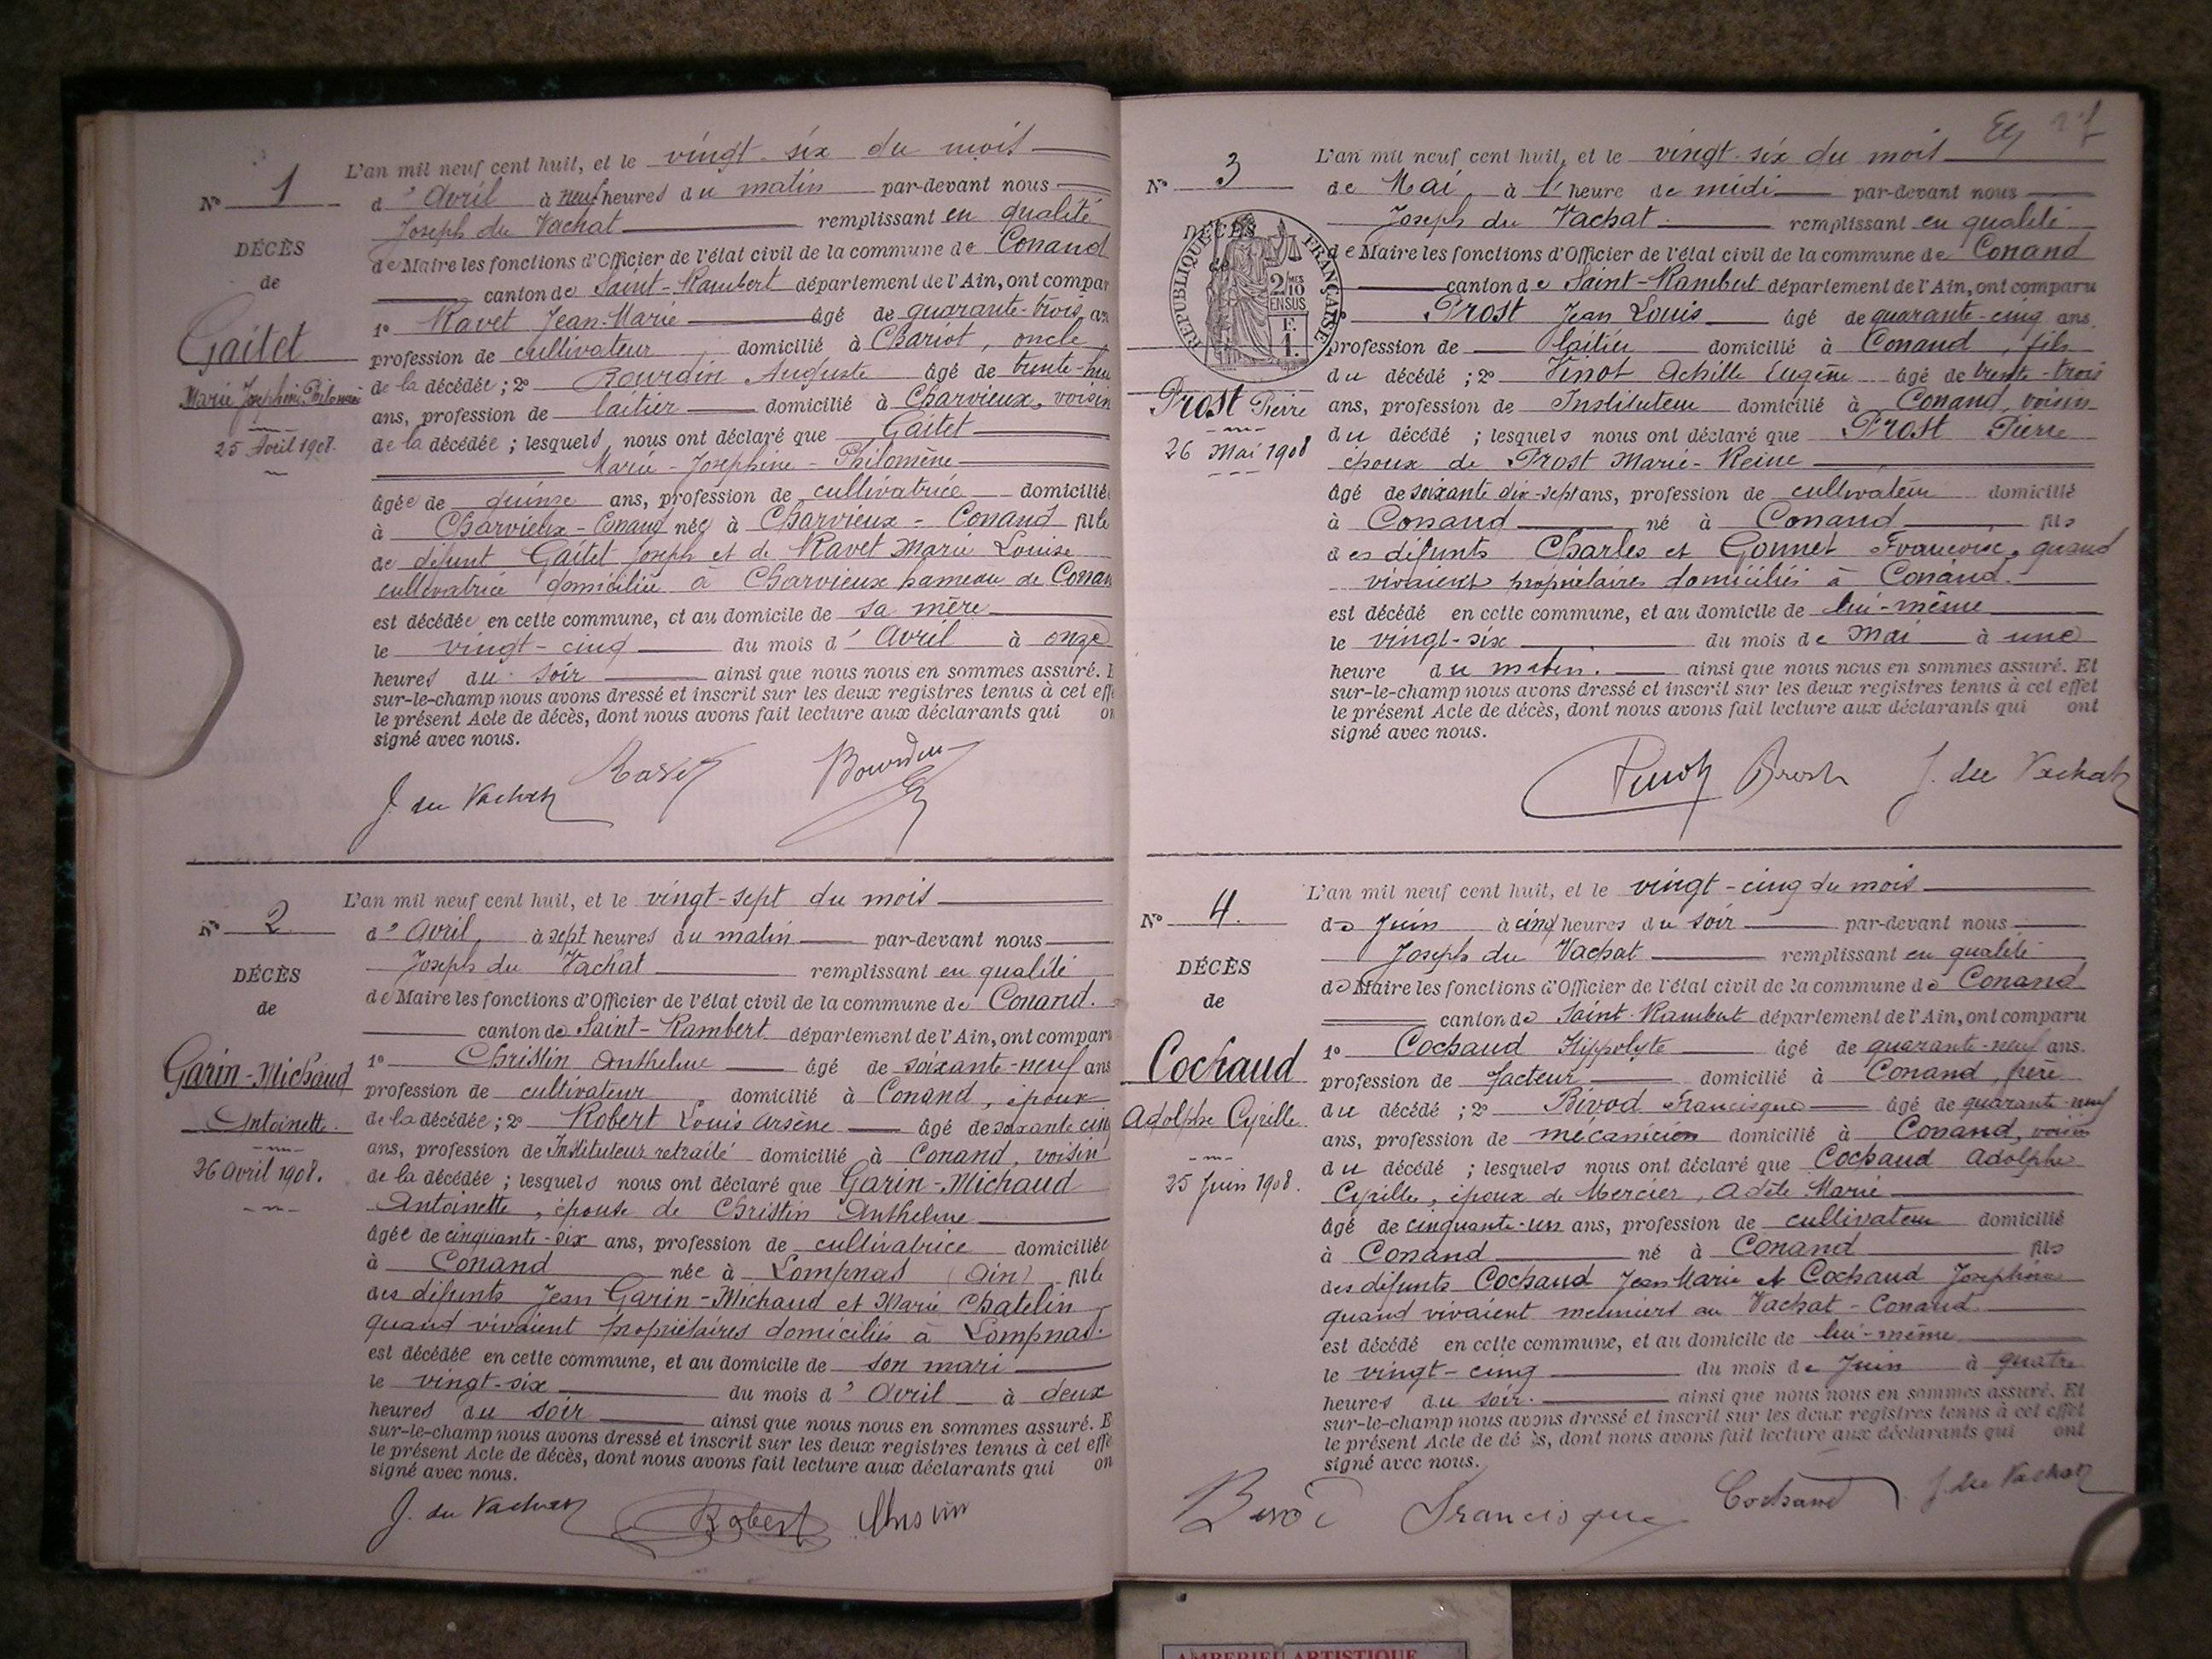 N° 1
DÉCÈS
de
Gaitet
Marie Joséphine Philomène
25 Avril 1908.
L'an mil neuf cent huit, et le vingt-six du mois
d'Avril à neuf heures du matin par-devant nous
Joseph du Vachat remplissant en qualité
de Maire les fonctions d'Officier de l'état civil de la commune de Conand
canton de Saint-Rambert département de l'Ain, ont compar
1° Ravet Jean-Marie âgé de quarante-trois an
profession de cultivateur domicilié à Charvieux, oncle
de la décédée ; 2° Bourdin Auguste âgé de trente-hui
ans, profession de laitier domicilié à Charvieux, voisin
de la décédée ; lesquels nous ont déclaré que Gaitet
Marie-Joséphine-Philomène
âgée de quinze ans, profession de cultivatrice domiciliée
à Charvieux-Conand née à Charvieux-Conand fille
de défunt Gaitet Joseph et de Ravet Marie Louise
cultivatrice domiciliée à Charvieux hameau de Conan
est décédée en cette commune, et au domicile de sa mère
le vingt-cinq du mois d'Avril à onze
heures du soir ainsi que nous nous en sommes assuré. E
sur-le-champ nous avons dressé et inscrit sur les deux registres tenus à cet effe
le présent Acte de décès, dont nous avons fait lecture aux déclarants qui on
signé avec nous.
J. du Vachat Ravet Bourdin
N° 2
DÉCÈS
de
Garin-Michaud
Antoinette.
26 Avril 1908.
L'an mil neuf cent huit, et le vingt-sept du mois
d'Avril, à sept heures du matin par-devant nous
Joseph du Vachat remplissant en qualité
de Maire les fonctions d'Officier de l'état civil de la commune de Conand.
canton de Saint-Rambert département de l'Ain, ont compar
1° Christin Anthelme âgé de soixante-neuf ans
profession de cultivateur domicilié à Conand, époux
de la décédée ; 2° Robert Louis Arsène âgé de soixante cinq
ans, profession de Instituteur retraité domicilié à Conand, voisin
de la décédée ; lesquels nous ont déclaré que Garin-Michaud
Antoinette, épouse de Christin Anthelme
âgée de cinquante-six ans, profession de cultivatrice domiciliée
à Conand née à Lompnas (Ain) fille
des défunts Jean Garin-Michaud et Marie Chatelin
quand vivaient propriétaires domiciliés à Lompnas.
est décédée en cette commune, et au domicile de son mari
le vingt-six du mois d'Avril à deux
heures du soir ainsi que nous nous en sommes assuré. E
sur-le-champ nous avons dressé et inscrit sur les deux registres tenus à cet effe
le présent Acte de décès, dont nous avons fait lecture aux déclarants qui on
signé avec nous.
J. du Vachat Robert Christin
N° 3
DÉCÈS
de
RÉPUBLIQUE FRANÇAISE
2/10
EN SUS
Prost Pierre
26 Mai 1908
L'an mil neuf cent huit, et le vingt-six du mois
de Mai, à l'heure de midi par-devant nous
Joseph du Vachat remplissant en qualité
de Maire les fonctions d'Officier de l'état civil de la commune de Conand
canton de Saint-Rambert département de l'Ain, ont comparu
Prost Jean Louis âgé de quarante-cinq ans.
profession de laitier domicilié à Conand, fils
du décédé ; 2° Pinot Achille Eugène âgé de trente-trois
ans, profession de Instituteur domicilié à Conand, voisin
du décédé ; lesquels nous ont déclaré que Prost Pierre
époux de Prost Marie-Reine
âgé de soixante dix-sept ans, profession de cultivateur domicilié
à Conand né à Conand, fils
des défunts Charles et Gonnet Françoise, quand
vivaient propriétaires domiciliés à Conand.
est décédé en cette commune, et au domicile de lui-même
le vingt-six du mois de Mai à une
heure du matin. ainsi que nous nous en sommes assuré. Et
sur-le-champ nous avons dressé et inscrit sur les deux registres tenus à cet effet
le présent Acte de décès, dont nous avons fait lecture aux déclarants qui ont
signé avec nous.
Pinot Prost J. du Vachat
N° 4.
DÉCÈS
de
Cochaud
Adolphe Cyrille.
25 Juin 1908.
L'an mil neuf cent huit, et le vingt-cinq du mois
de Juin à cinq heures du soir par-devant nous
Joseph du Vachat remplissant en qualité
de Maire les fonctions d'Officier de l'état civil de la commune de Conand
canton de Saint-Rambert département de l'Ain, ont comparu
1° Cochaud Hippolyte âgé de quarante-neuf ans.
profession de facteur domicilié à Conand, frère
du décédé ; 2° Bivod Francisque âgé de quarante-neuf
ans, profession de mécanicien domicilié à Conand, voisin
du décédé ; lesquels nous ont déclaré que Cochaud Adolphe
Cyrille, époux de Mercier, Adèle Marie
âgé de cinquante-un ans, profession de cultivateur domicilié
à Conand né à Conand fils
des défunts Cochaud Jean Marie et Cochaud Joséphine
quand vivaient meuniers au Vachat-Conand.
est décédé en cette commune, et au domicile de lui-même
le vingt-cinq du mois de Juin à quatre
heures du soir. ainsi que nous nous en sommes assuré. Et
sur-le-champ nous avons dressé et inscrit sur les deux registres tenus à cet effet
le présent Acte de dé ès, dont nous avons fait lecture aux déclarants qui ont
signé avec nous.
Bivod Francisque Cochaud J. du Vachat
AMBERIEU ARTISTIQUE